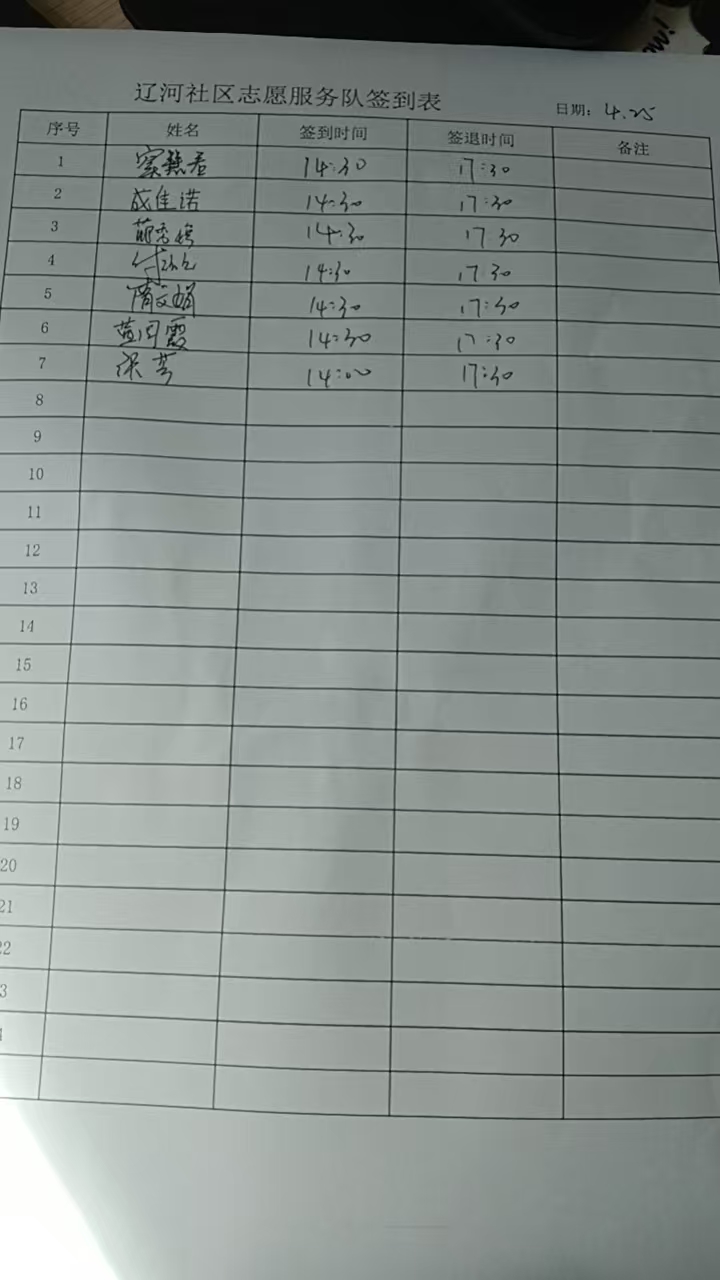 ow!
辽河社区志愿服务队签到表 日期: 4.25
序号 姓名 签到时间 签退时间 备注
1 14:30 17:30
2 成佳诺 14:30 17:30
3 14:30 17 30
4 14:30 17 30
5 隋文娟 14:30 17:30
6 黄同霞 14:30 17:30
7 张芳 14:00 17:30
8
9
10
11
12
13
14
15
16
17
18
19
20
21
22
3